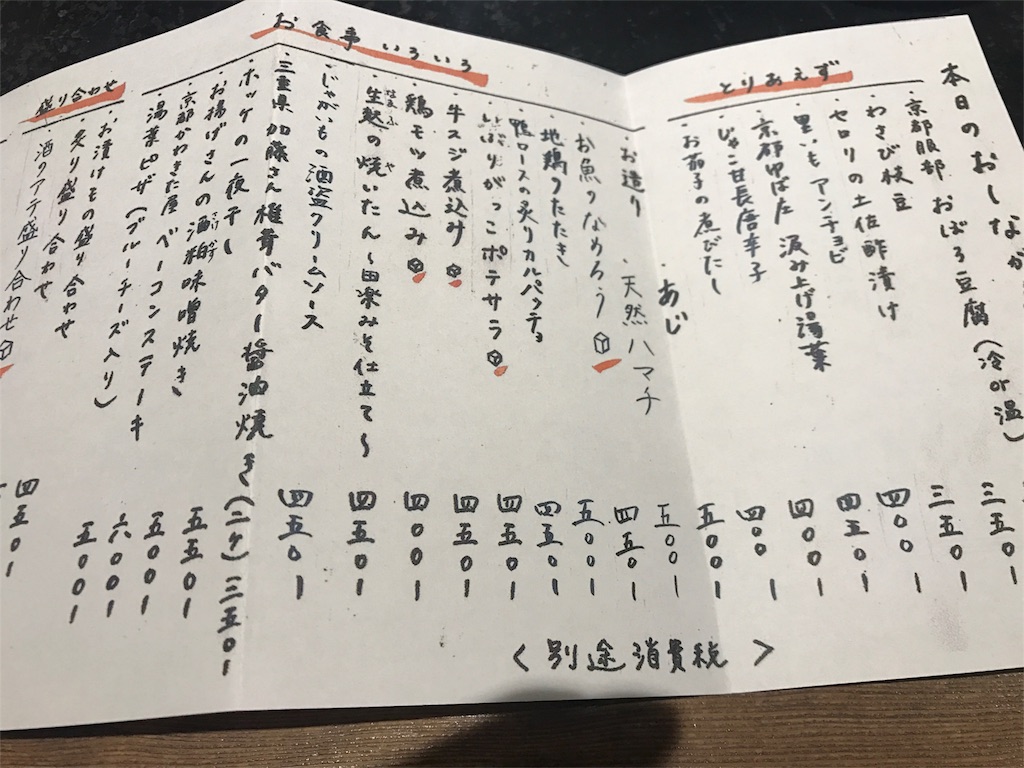 本日のおしなが
とりあえず
・京都服部 おぼろ豆腐(冷or温) 三五〇ー
・わさび枝豆 三五〇ー
・セロリの土佐酢漬け 四〇〇ー
・里いもアンチョビ 四五〇ー
・京都ゆば庄 汲み上げ湯葉 四〇〇ー
・じゃこ甘長唐辛子 四〇〇ー
・お茄子の煮びたし 五〇〇ー
お食事いろいろ
・お造り ・あじ
・天然ハマチ 五〇〇ー
・お魚のなめろう 四五〇ー
・地鶏のたたき 五〇〇ー
・鴨ロースの炙りカルパッチョ 四五〇ー
・いぶりがっこポテサラ 四五〇ー
・牛スジ煮込み 四五〇ー
・鶏モツ煮込み 四〇〇ー
・生麩の焼いたん〜田楽みそ仕立て〜 四五〇ー
なまふ や
・じゃがいもの酒盗クリームソース 四五〇ー
・三重県加藤さん椎茸バター醤油焼き(二ケ) 三五〇ー
・ホッケの一夜干し 五五〇ー
・お揚げさんの酒粕味噌焼き 五〇〇ー
さけかす
・京都かわきた屋 ベーコンステーキ 六〇〇ー
・湯葉ピザ(ブルーチーズ入り) 五〇〇ー
盛り合わせ
・お漬けもの盛り合わせ 四五〇ー
・炙り盛り合わせ
・酒のアテ盛り合わせ
<別途消費税>